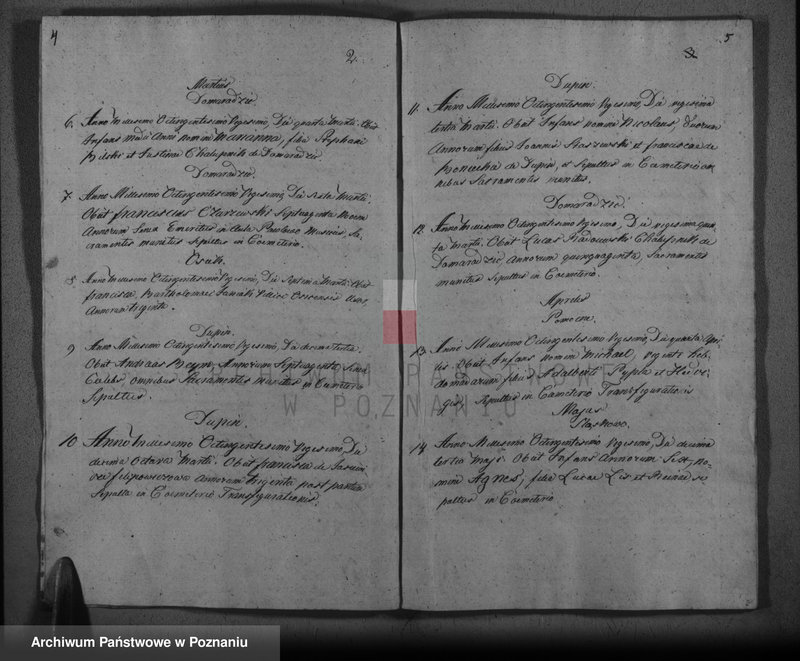 4
2
Martius
Domaradzic.
6 Anno Millesimo Octingentesimo Vigesimo, Die quarta Martii Obiit
Infans unius Anni nomine Marianna, filia Stephani
et Justinae Chalupnik de Domaradzic.
Domaradzic.
7 Anno Millesimo Octingentesimo Vigesimo, Die Sexta Martii
Obiit Franciscus Czurzewski Septuaginta
Annorum Senex Emeritus in Aula
Sacramentis munitus Sepultus in Coemeterio.
8 Anno Millesimo Octingentesimo Vigesimo, Die Septima Martii Obiit
Francisca, Bartholomaei
Annorum triginta.
Dupin.
9 Anno Millesimo Octingentesimo Vigesimo, Die decima tertia
Obiit Andreas Annorum Septuaginta Senex
Caelebs, omnibus Sacramentis munitus in Coemeterio
Sepultus.
Dupin.
10 Anno Millesimo Octingentesimo Vigesimo, Die
decima Octava Martii. Obiit Francisca de
Filipowiczowa Annorum triginta post partum
Sepulta in Coemeterio Transfigurationis.
5
3
Dupin.
11 Anno Millesimo Octingentesimo Vigesimo, Die vigesima
tertia Martii. Obiit Infans nomine Nicolaus, duorum
Annorum filius Joannis et Franciscae de
de Dupin, et Sepultus in Coemeterio om
nibus Sacramentis munitus.
Domaradzic.
12 Anno Millesimo Octingentesimo Vigesimo, Die vigesima quar
ta Martii. Obiit Lucas Chalupnik de
Domaradzic, Annorum quinquaginta, Sacramentis
munitus Sepultus in Coemeterio.
Aprilis
13 Anno Millesimo Octingentesimo Vigesimo, Die quarta Apri
lis Obiit Infans nomine Michael, viginti heb
domadarum filius Adalberti et
Sepultus in Coemeterio Transfigurationis
Majus
14 Anno Millesimo Octingentesimo Vigesimo, Die decima
tertia Maji. Obiit Infans Annorum Sex, no
mine Agnes, filia Lucae Lis et se
pultus in Coemeterio
ARCHIWUM PAŃSTWOWE
W POZNANIU
Archiwum Państwowe w Poznaniu